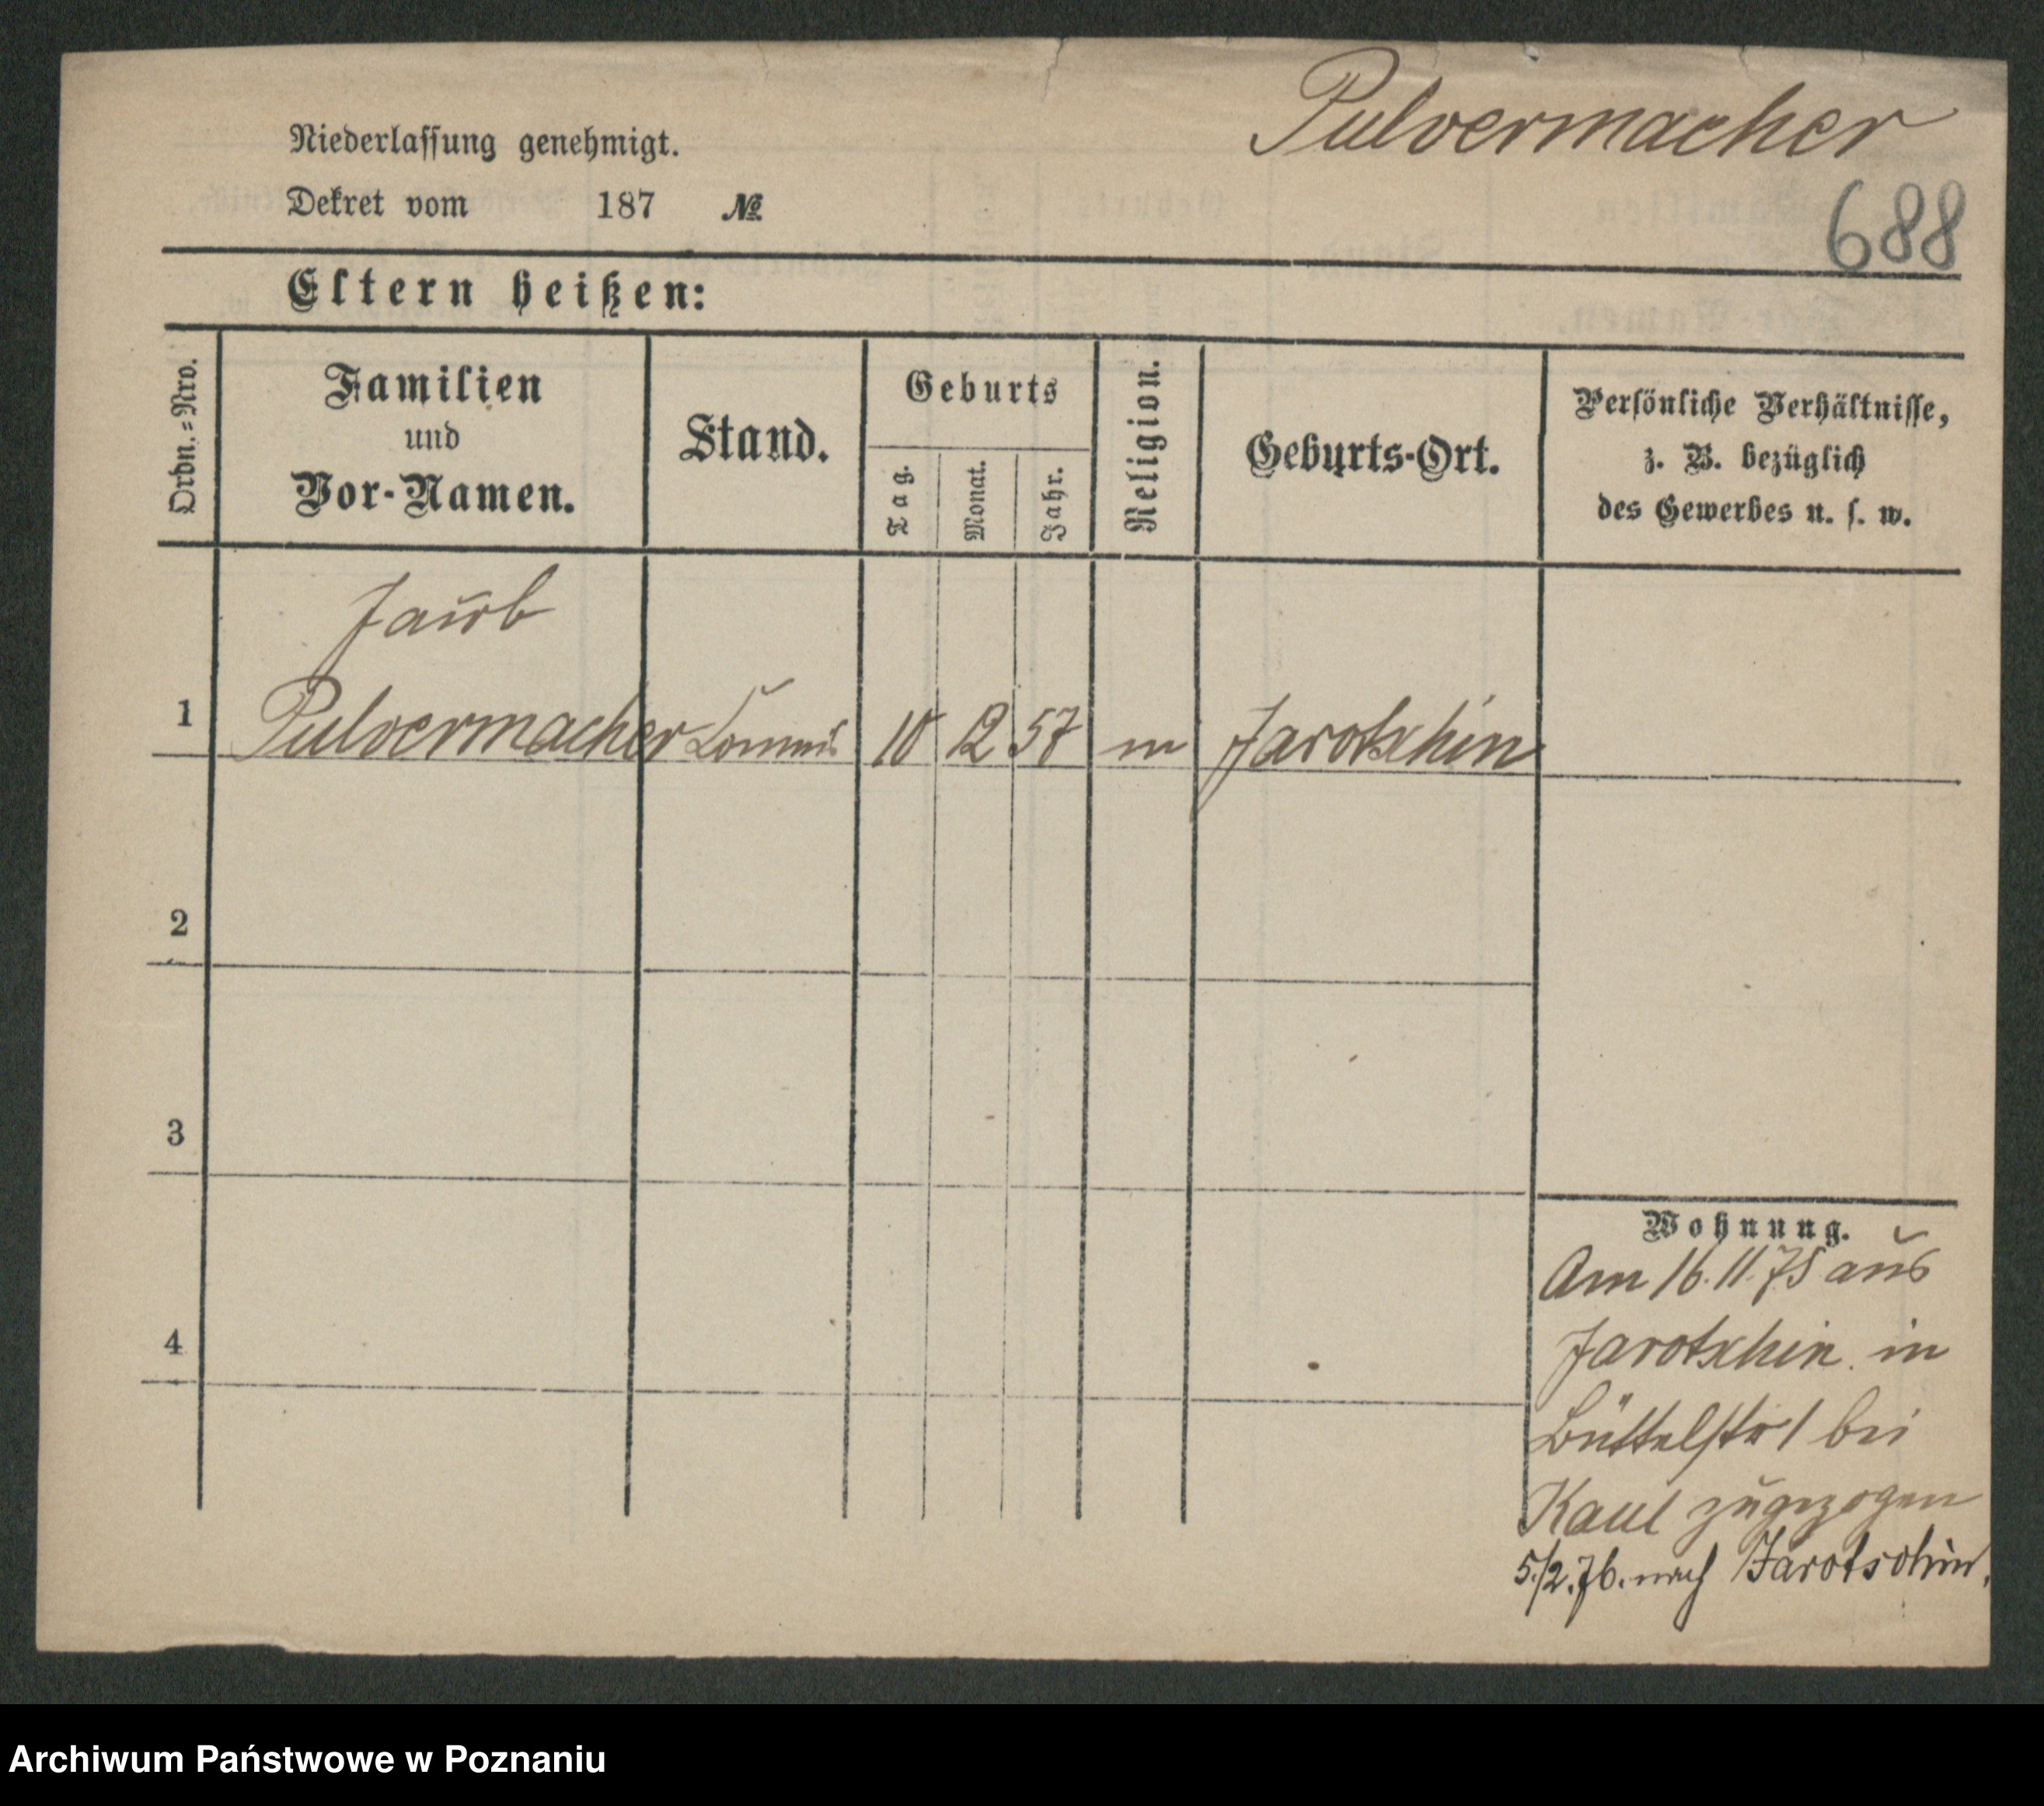 Pulvermacher
Niederlassung genehmigt.
Dekret vom 187 №
688
Eltern heißen:
Ordn.=Nro.
Familien
und
Vor-Namen.
Stand.
Geburts
Tag.
Monat.
Jahr.
Religion.
Geburts-Ort.
Persönliche Verhältnisse,
z. B. bezüglich
des Gewerbes u. s. w.
Jacob
1 Pulvermacher Commis 10 12 57 m Jarotschin
2
3
4
Wohnung.
Am 16.11.75 aus
Jarotschin in
Büttelstr 1 bei
Kaul zugezogen
5./2.76. nach Jarotschin.
Archiwum Państwowe w Poznaniu